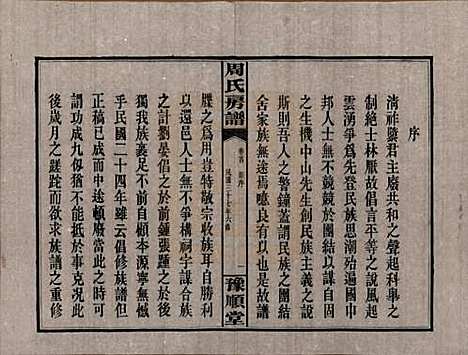 序
淸祚隳君主廢共和之聲起科舉之
制絶士林厭故倡言平等之說風起
雲湧爭爲先登民族思潮瀰遍國中
邦人士無不競競於團結以謀自固
之生機中山先生創民族主義之說
斯則吾人之警鐘蓋謂民族之團結
舍家族無途焉噫良有以也故譜
周氏房譜
卷首 新序
民國三十七年六修
一
豫順堂
牒之爲用豈特敬宗收族耳自勝利
以還邑人士無不爭構祠宇謀合族
之計劉晏倡之於前鍾蕭繼之於後
獨我族豈忘本源寧無憾
乎民國二十四年雖云倡修族譜但
正稿已成而中途頓廢當此之時可
謂功成九仭猶不能抵於事克况此
後歲月之蹉跎而欲求族譜之重修